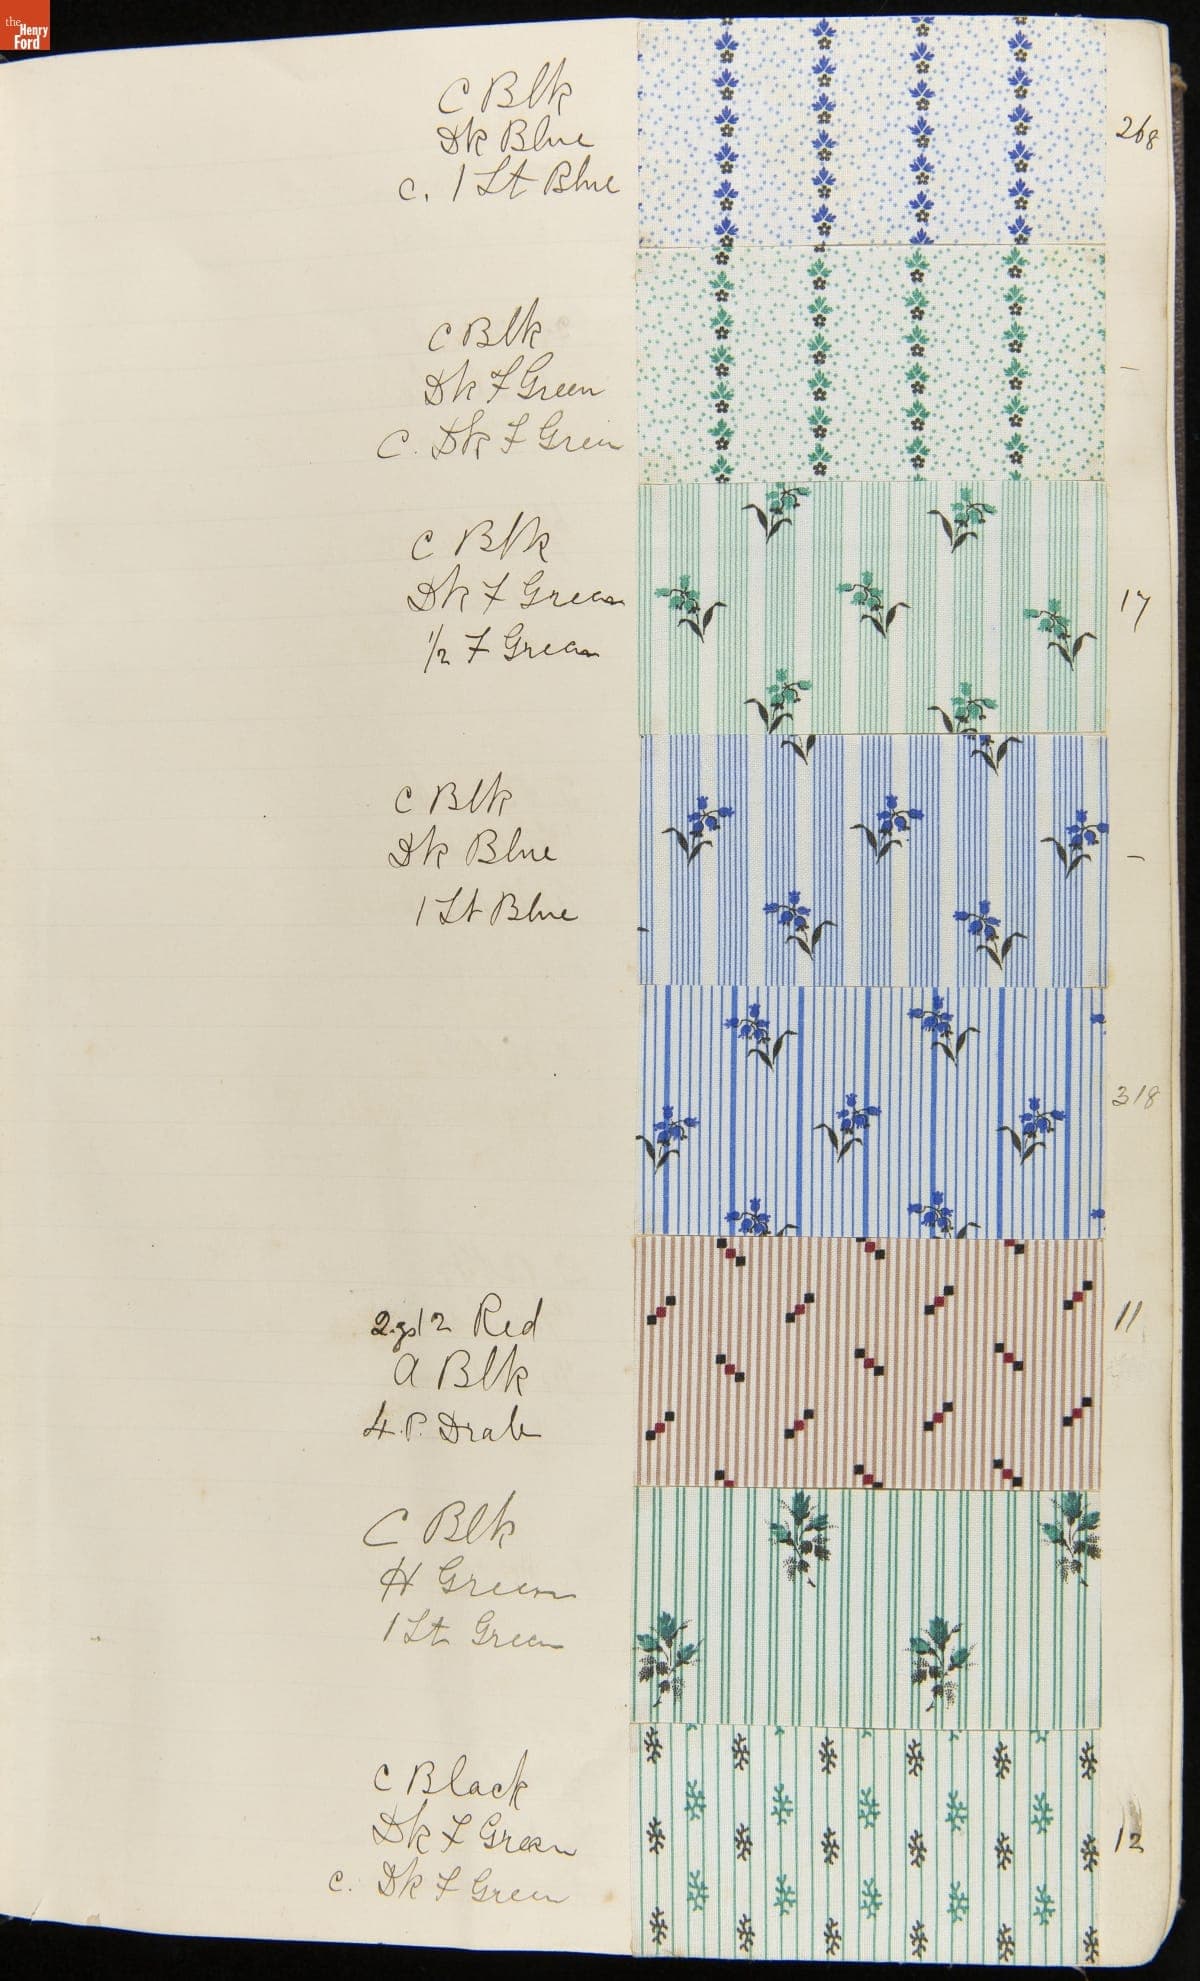 the Henry Ford
C Blk
Dk Blue
c. 1 Lt Blue
268
C Blk
Dk F Green
C. Dk F Green
–
C Blk
Dk F Green
1/2 F Green
17
C Blk
Dk Blue
1 Lt Blue
–
318
12 Red
a Blk
4.P. Drab
11
C Blk
H Green
1 Lt Green
C Black
Dk F Green
c. Dk F Green
12